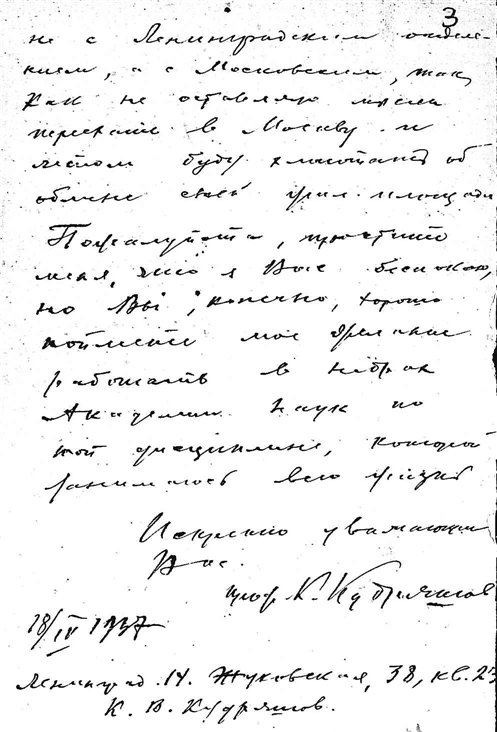 3
не с Ленинградским отделе-
нием, а с Московским, так
как не оставляю мысли
переехать в Москву и
летом буду хлопотать об
обмене своей жил. площади
Пожалуйста, простите
меня, что я Вас беспокою,
но Вы, конечно, хорошо
поймете мое желание
работать в недрах
Академии Наук по
той дисциплине, которой
занимаюсь всю жизнь
Искренно уважающий
Вас
проф. К. Кудряшов
18/IV 1937
Ленинград. 14. Жуковская, 38, кв. 23
К. В. Кудряшов.